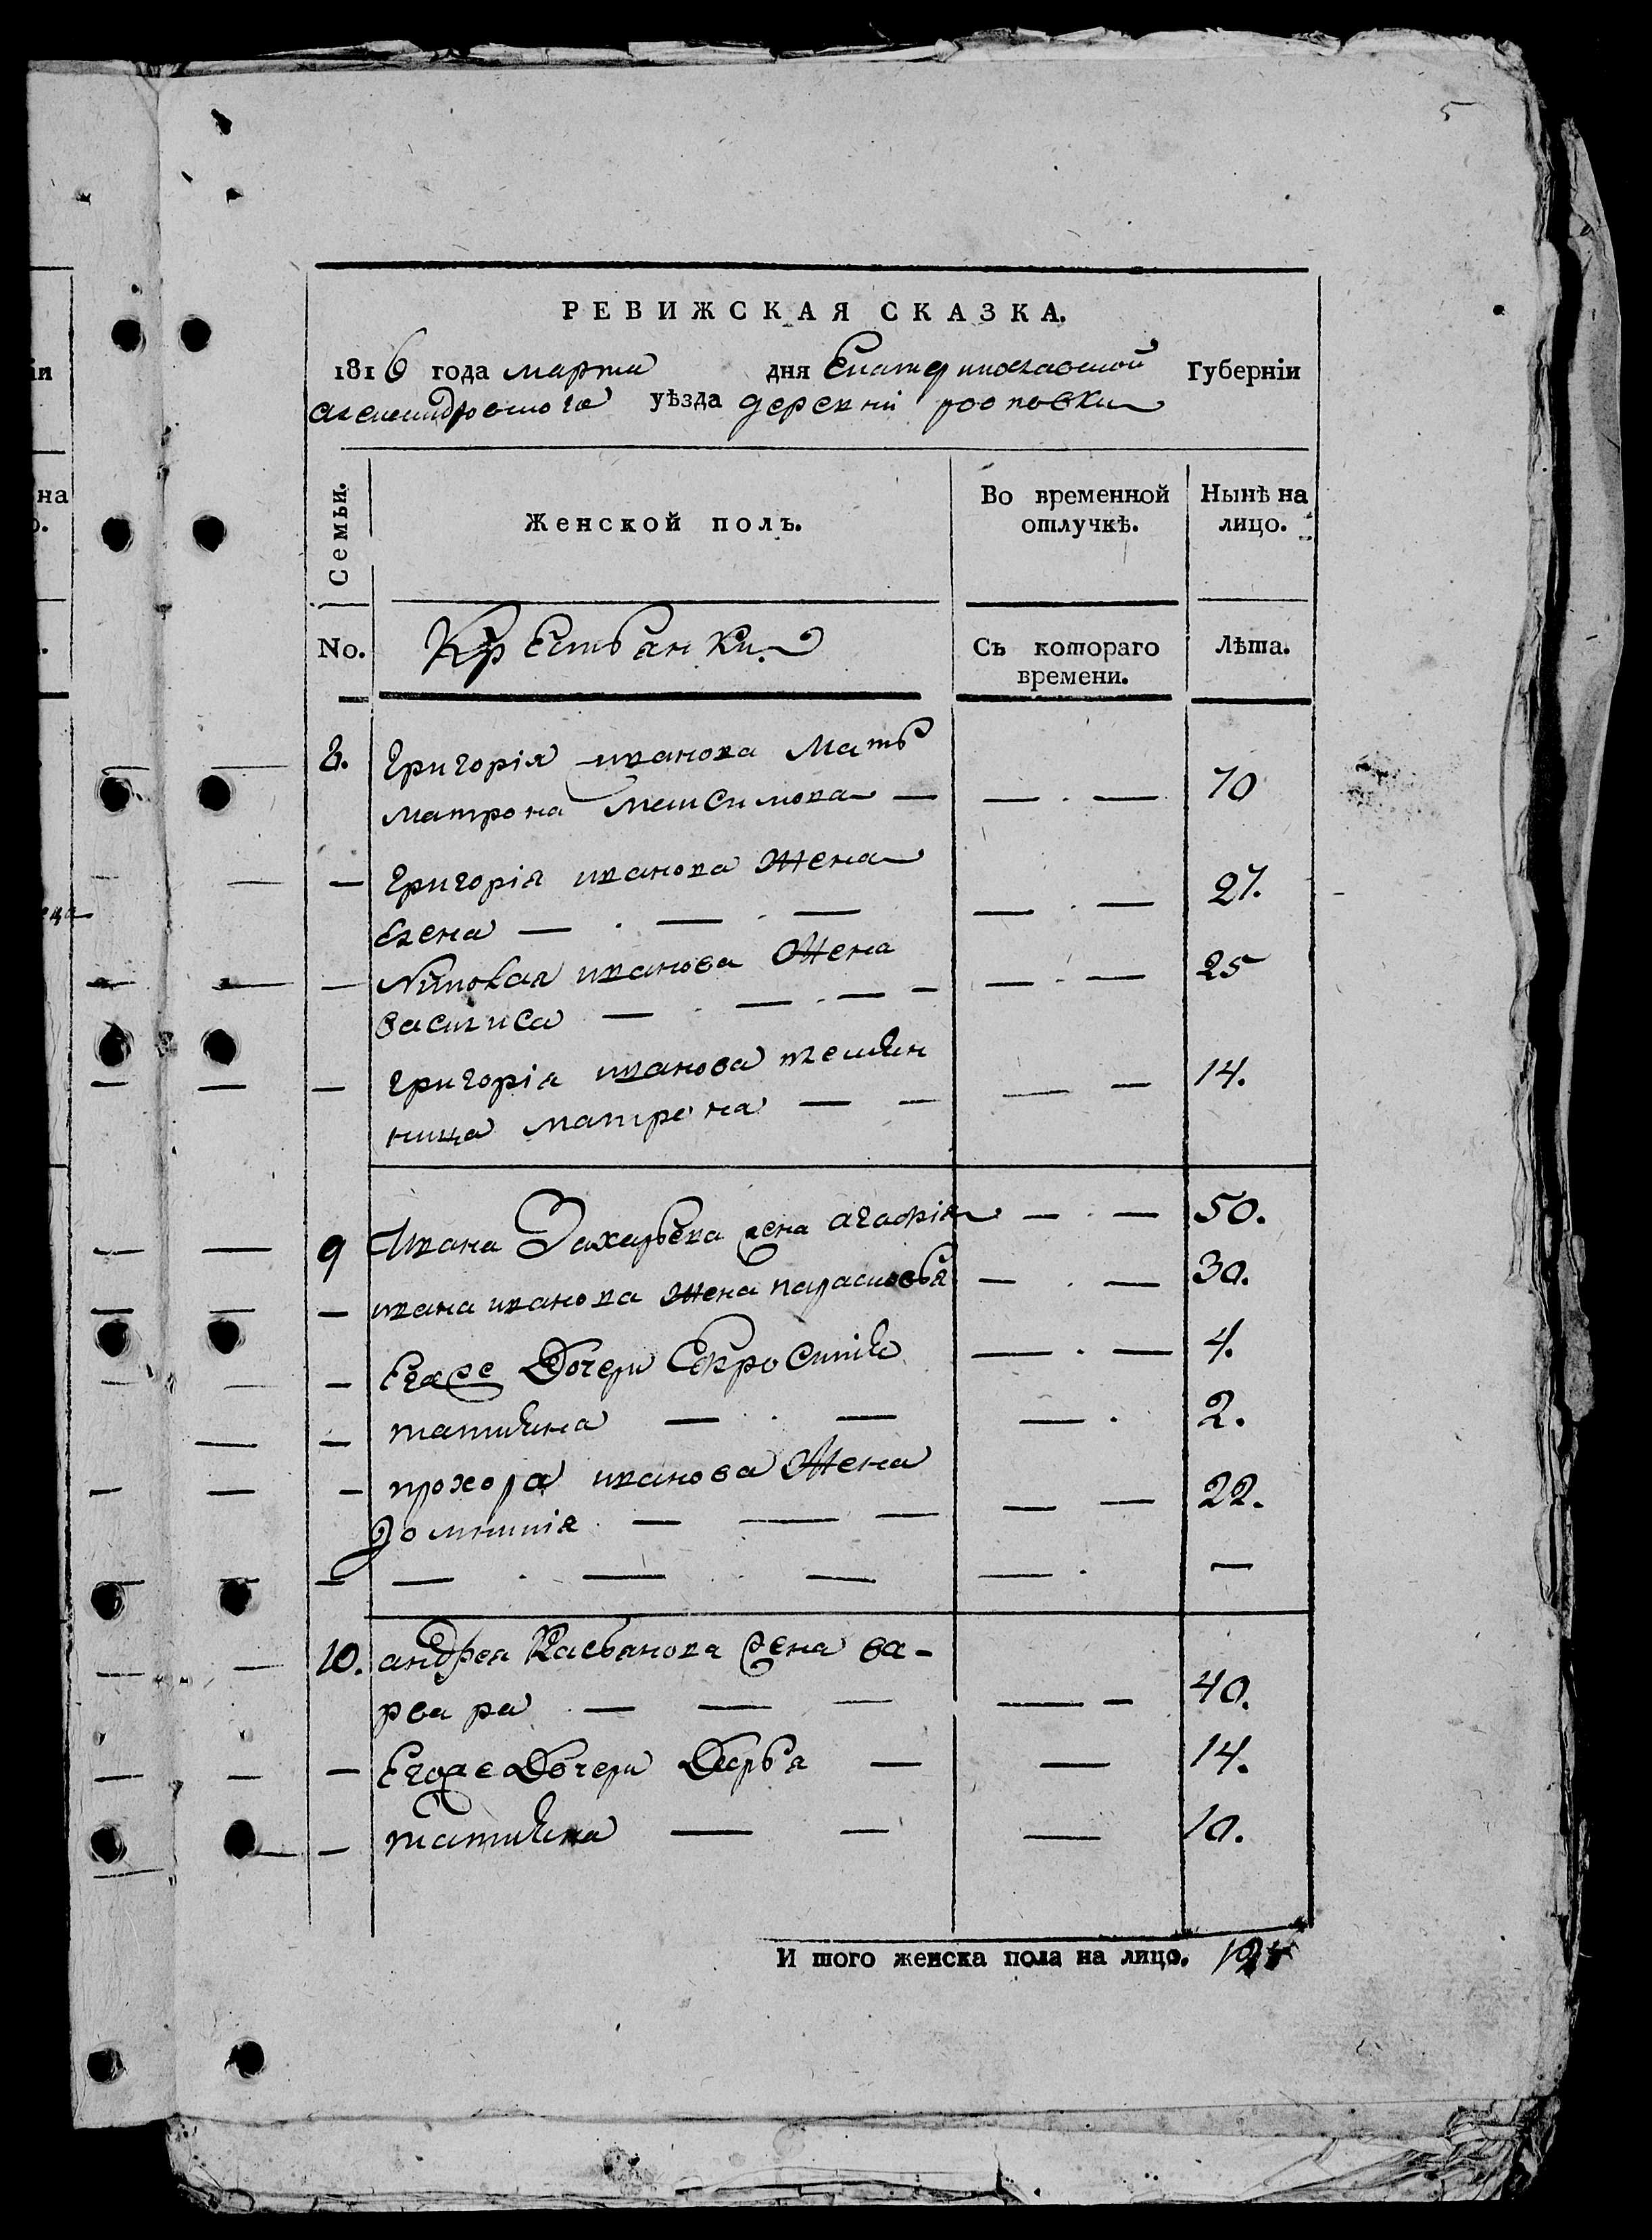 5
РЕВИЖСКАЯ СКАЗКА.
1816 года марта дня Екатеринославской Губерніи
александровскога уѣзда деревни
Семьи.
Женской полъ.
Во временной отлучкѣ.
Нынѣ на лицо.
No.
Крестьанки
Съ котораго времени.
Лѣта.
8. григорія иванова мать
матрона максимова — — . — 70
— григорія иванова жена
елена — . — . — — . — 27.
— николая иванова жена 25
василиса — . — . — — — . —
— григорія иванова племян 14.
ница матрона — — — —
9 ивана Захарьева жена агафія — . — 50.
— ивана иванова жена парасковья — . — 30.
— Егоже Дочери Ефросинія — . — 4.
— татияна — . — — . 2.
— прохора иванова жена
домникия — — — — — 22.
— — . — . — — . —
10. андрея Касьанова жена ва-
рвара — — — — — 40.
— Егоже Дочери Дарья — — 14.
— татияна — — — 10.
И того женска пола на лицо.